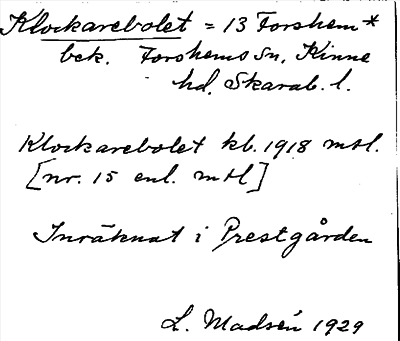 Klockarebolet = 13 Forshem*
bek. Forshems Sn, Kinne
hd, Skarab. l.
Klockarebolet kb. 1918 mtl.
[nr. 15 enl. mtl]
Inräknat i Prestgården
L. Madsén 1929